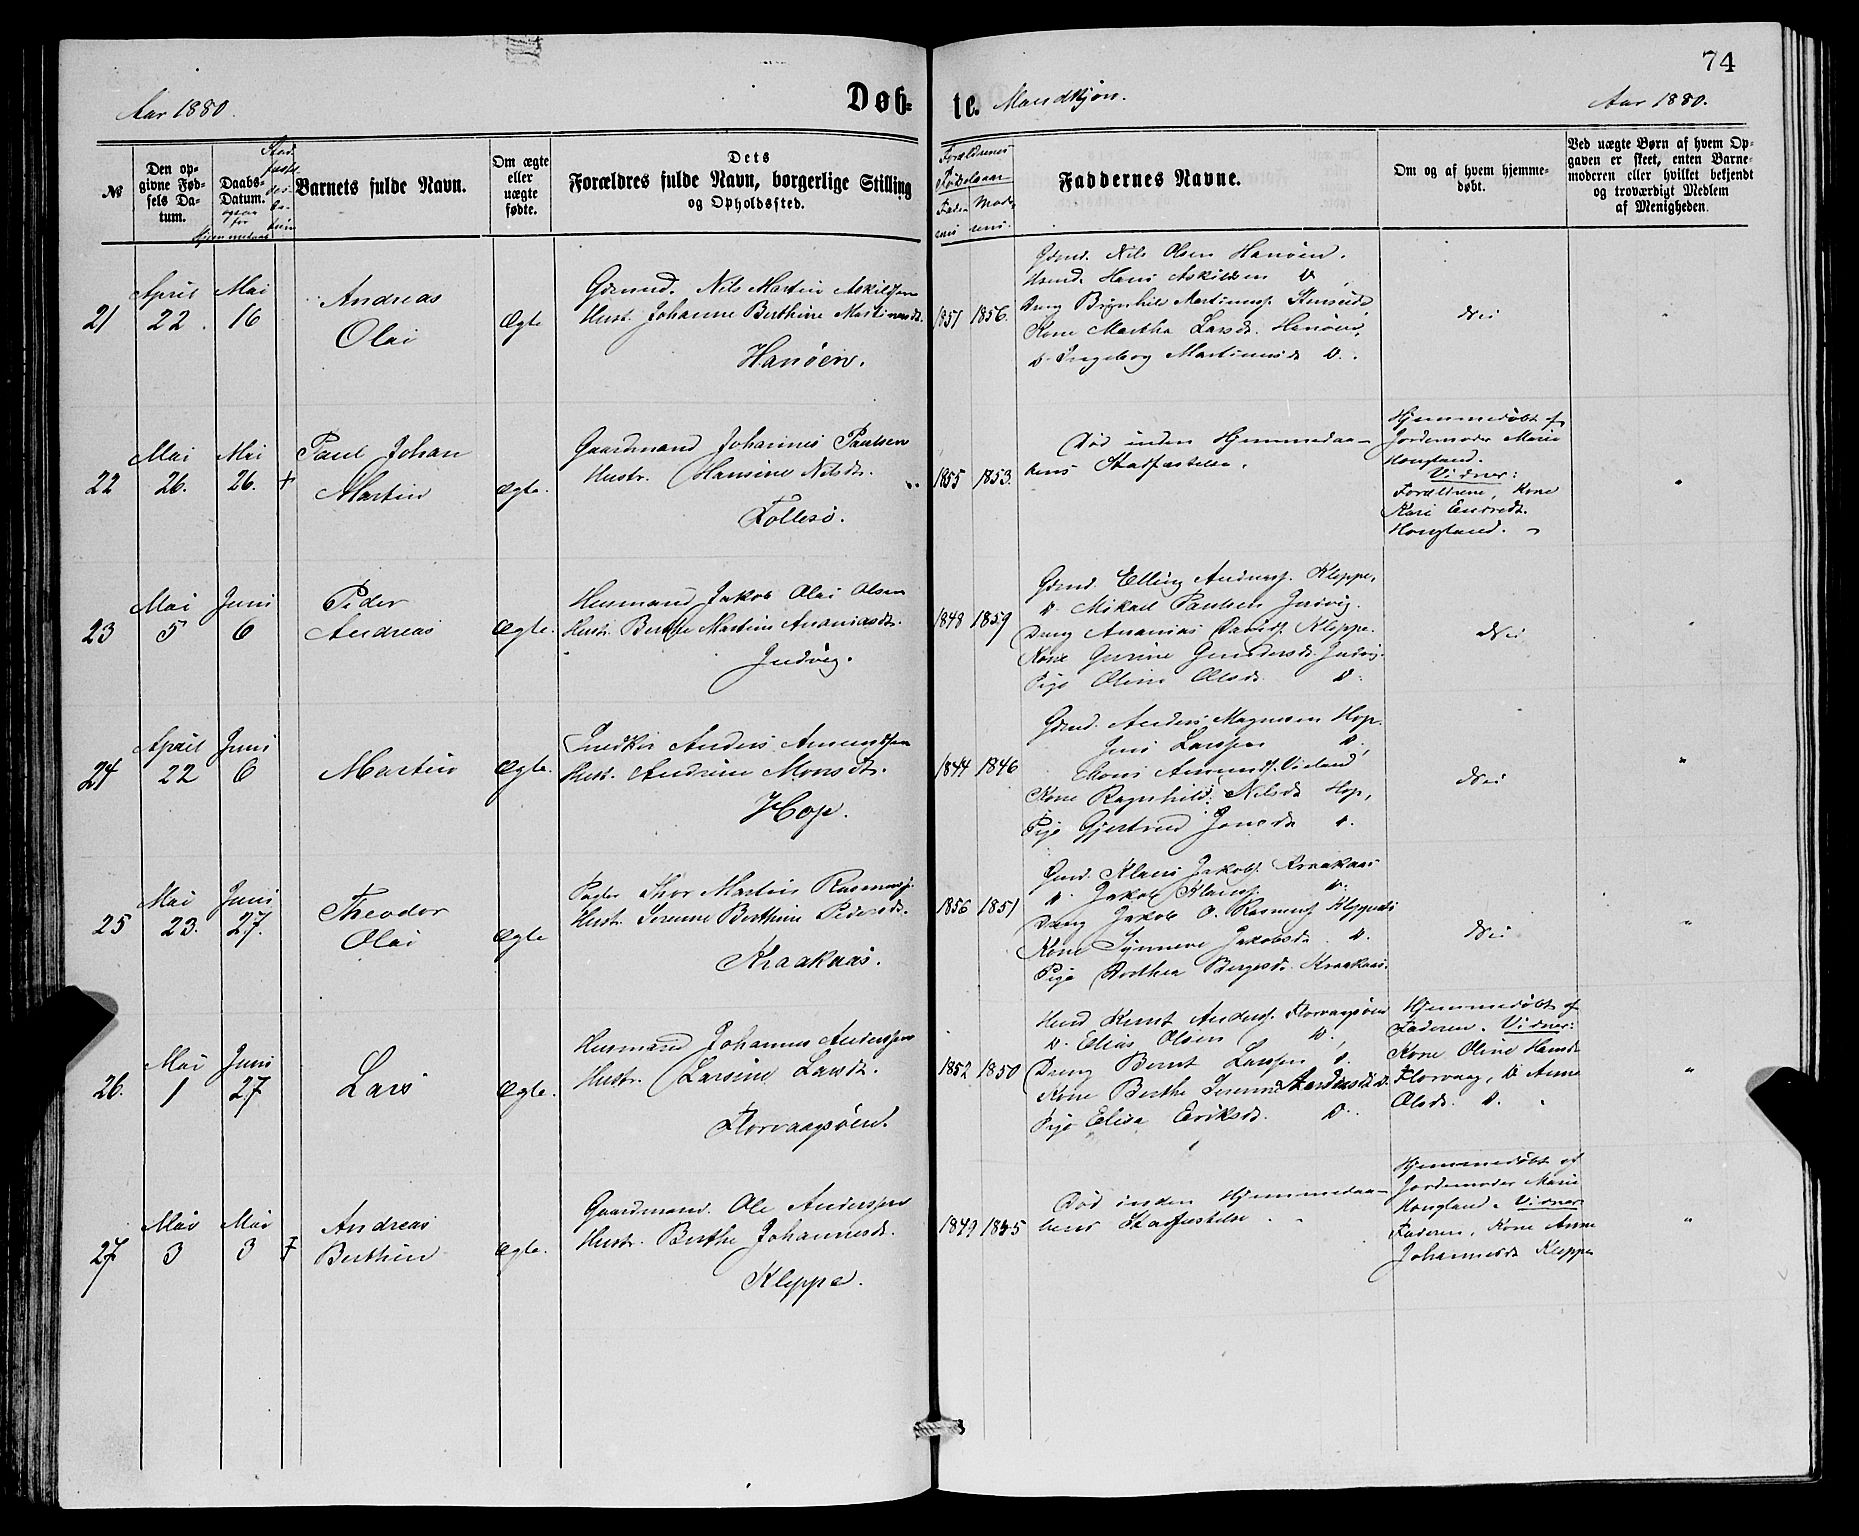 74
Aar 1880.
Døb-
te.
Mandkjøn.
Aar 1880.
№
Den op-
givne Fød-
sels Da-
tum.
Daabs-
Datum.
Barnets fulde Navn.
Om ægte
eller
uægte
fødte.
Dets
Forældres fulde Navn, borgerlige Stilling
og Opholdssted.
Forældrenes
Fødselsaar
Faderens
Moderens
Faddernes Navne.
Om og af hvem hjemme-
døbt.
Ved uægte Børn af hvem Op-
gaven er skeet, enten Barne-
moderen eller hvilket bekjendt
og troværdigt Medlem
af Menigheden.
21
April
22.
Mai
16
Andreas
Olai
Ægte
Gdmd. Nils Martin Askildsen
Hust. Johanne Berthine Martinusdr.
Hanøen.
1851
1856.
Gdmd. Nils Olsen Hanøen.
Hans Askildsen D
Dreng Brynhild Martinusf.
Kone Martha Larsdr. Hanøen,
D. Ingeborg Martinusdr D.
Nei
22
Mai
26.
Mai
26. +
Paul Johan
Martin
Ægte.
Gaardmand Johannes Paulsen
Hustr. Hansine Nilsdr.
Follesø.
1855
1853.
Død inden Hjemmedaa-
bens Stadfæstelse.
Hjemmedøbt af
Jordemoder Marie
Hougland.
Vidner:
Forældrene, Kone
Kari
Hougland.
23
Mai
5
Juni
6
Peder
Andreas
Ægte.
Husmand Jakob Olai Olsen
Hustr. Berthe Martine Ananiasdr.
Indvig.
1848
1859
Gdmd. Elling Andersf. Kleppe,
D. Mikael Paulsen Indvig.
Dreng Ananias Davidsf. Kleppe.
Kone Gurine Gundersdr. Indvig.
Pige Oline Olsdr. D.
Nei
24
April
22
Juni
6
Martin
Ægte.
Anders Amundsen
Hust. Andrine Monsdr.
Hop.
1844
1846
Gdmd. Anders Magnesen Hop.
Jens Larssen D.
Mons Amundsf. Vieland
Kone Ragnhild Nilsdr Hop,
Pige Gjertrud Jonsdr D.
Nei
25
Mai
23.
Juni
27.
Theodor
Olai
Ægte
Thor Martin Rasmusf.
Hust. Serine Berthine Pedersdr.
Kraakaas.
1856
1851
Gmd. Klaus Jakobsf. Kraakaas
D. Jakob Klausf. D.
Dreng Jakob O. Rasmusf Kleppenes
Kone Synneve Jakobsdr. D.
Pige Dorthea Børgesdr. Kraakaas.
Nei
26.
Mai
1
Juni
27
Lars
Ægte.
Husmand Johannes Anderssen
Hustr. Larsine Larsdr.
Florvaagsøen.
1852
1850
Hmd Knut Andersf. Florvaagsøen
D. Elias Olsen D,
Dreng Bernt Larssen D.
Kone Berthe Serine Andersdr D.
Pige Elisa Eriksdr. D.
Hjemmedøbt af
Faderen. Vidner:
Kone Oline Hansdr
Florvaag, D Anne
Olsdr. D.
27
Mai
3
Mai
3 +
Andreas
Berthin
Ægte.
Gaardmand. Ole Anderssen
Hustr. Berthe Johannesdr.
Kleppe.
1849
1845
Død inden Hjemmedaa-
bens Stadfæstelse.
Hjemmedøbt af
Jordemoder Marie
Hougland. Vidner
Faderen, Kone Anne
Johannesdr Kleppe